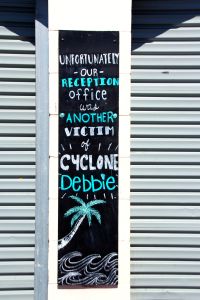 UNFORTUNATELY
-OUR-
RECEPTION
OFFICE
was
•ANOTHER•
VICTIM
of
CYCLONE
Debbie